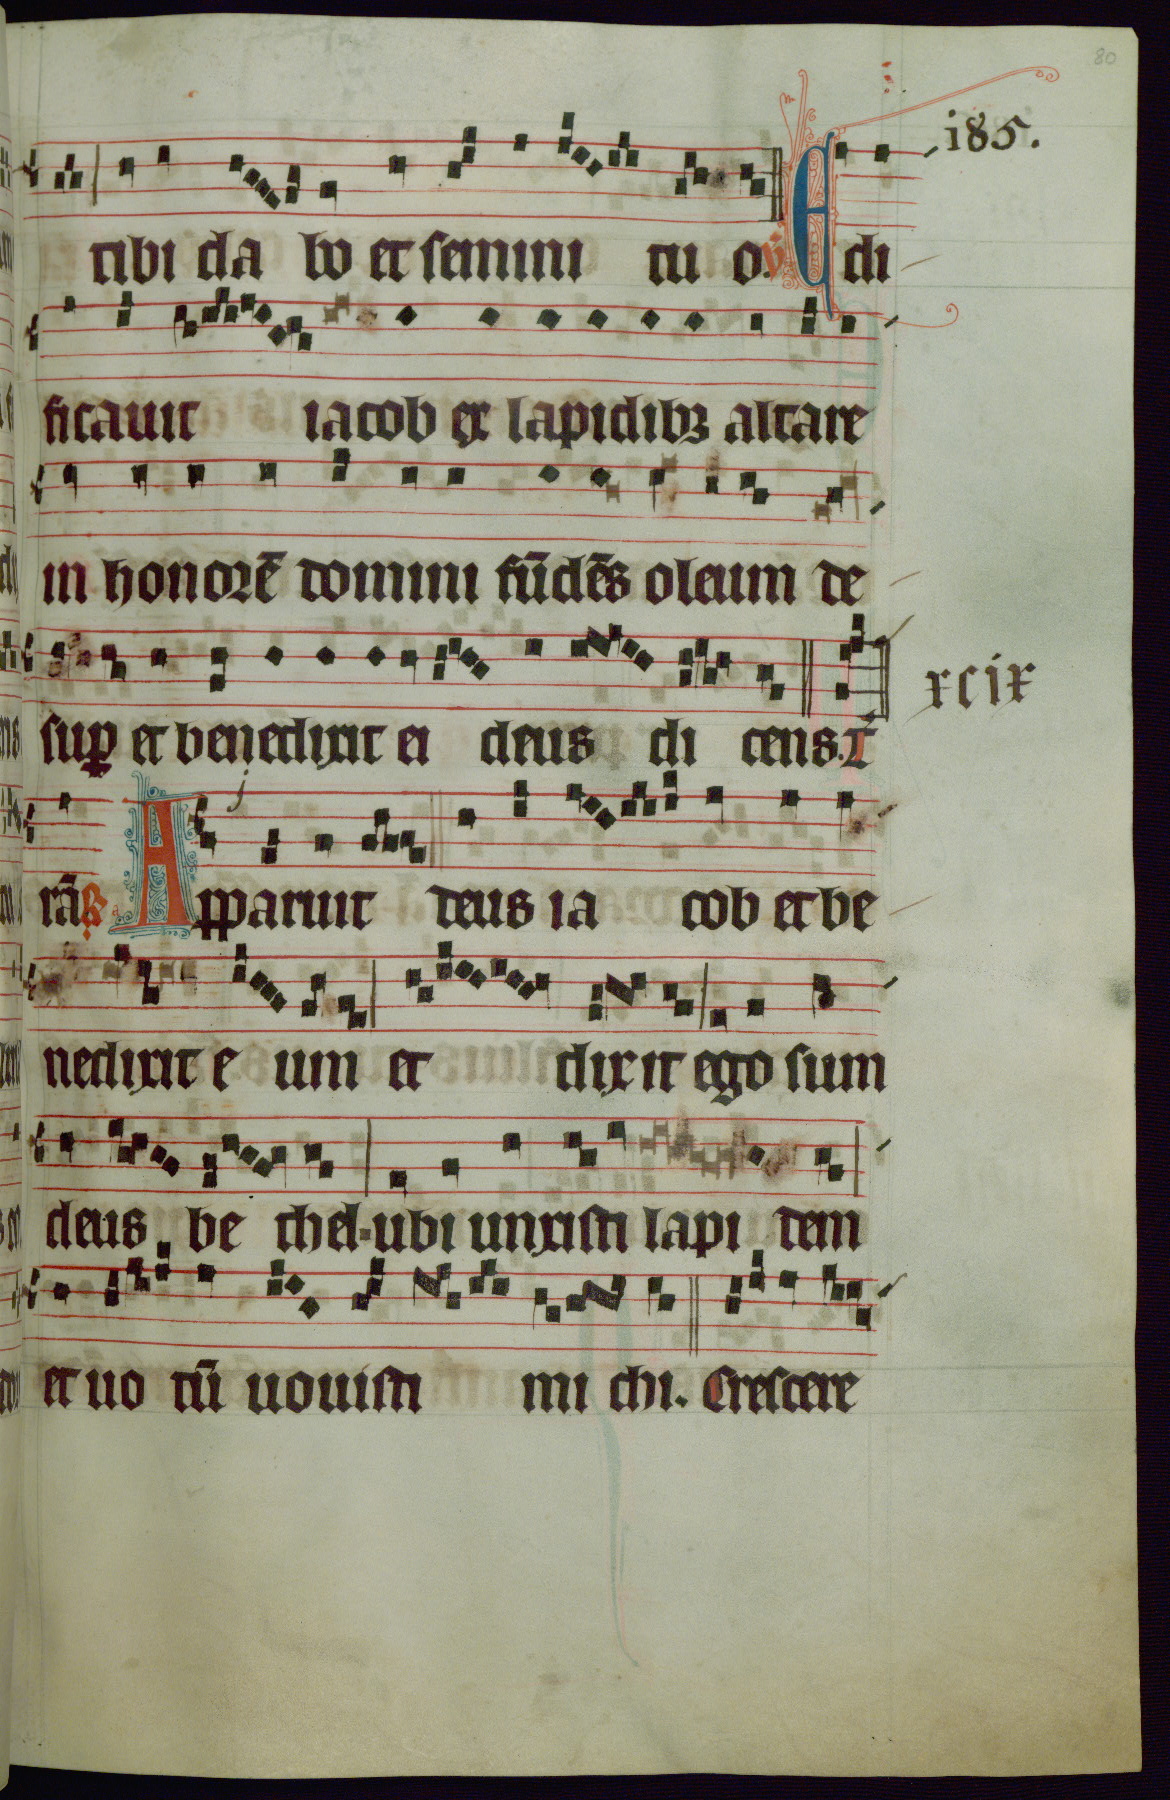 80
i85.
tibi da bo et semini tu o. V Edi
ficauit iacob ex lapidibꝫ altare
in honorē domini fūdēs oleum de
suꝑ et benedixit ei deus di cens. T
xcix
rā R Apparuit deus ia cob et be
nedixit e um et dixit ego sum
deus be thel-ubi unxisti lapi dem
et uo tū uouisti mi chi. Crescere